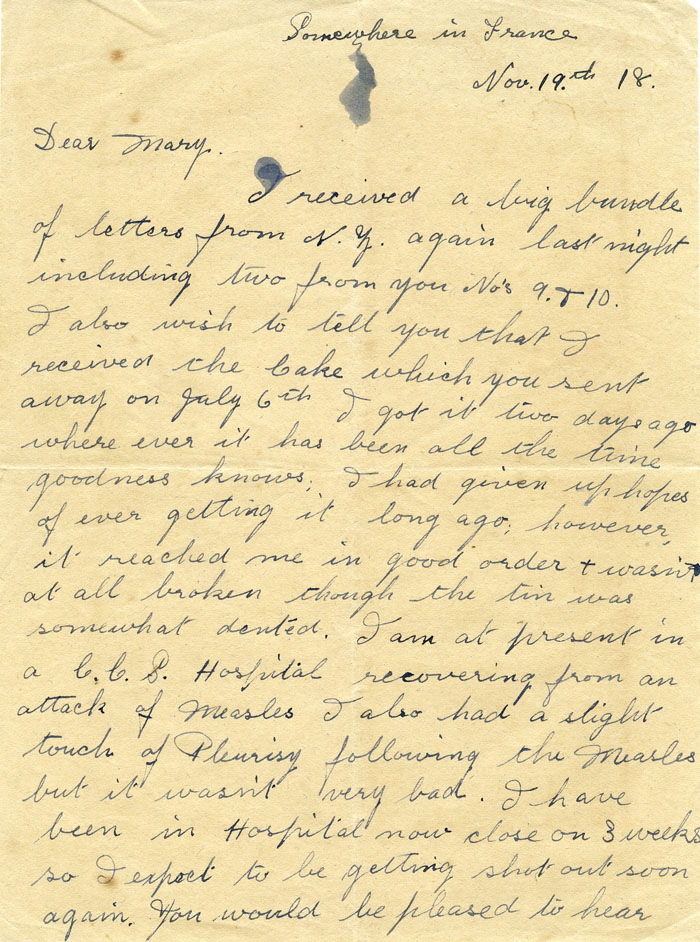 Somewhere in France
Nov. 19.th 18.
Dear Mary.
I received a big bundle
of letters from N. Z. again last night
including two from you No's 9. & 10.
I also wish to tell you that I
received the Cake which you sent
away on July 6th I got it two days ago
where ever it has been all the time
goodness knows; I had given up hopes
of ever getting it long ago; however,
it reached me in good order + wasn't
at all broken though the tin was
somewhat dented. I am at present in
a C.C.S. Hospital recovering from an
attack of Measles I also had a slight
touch of Pleurisy following the Measles
but it wasn't very bad. I have
been in Hospital now close on 3 weeks
so I expect to be getting shot out soon
again. You would be pleased to hear